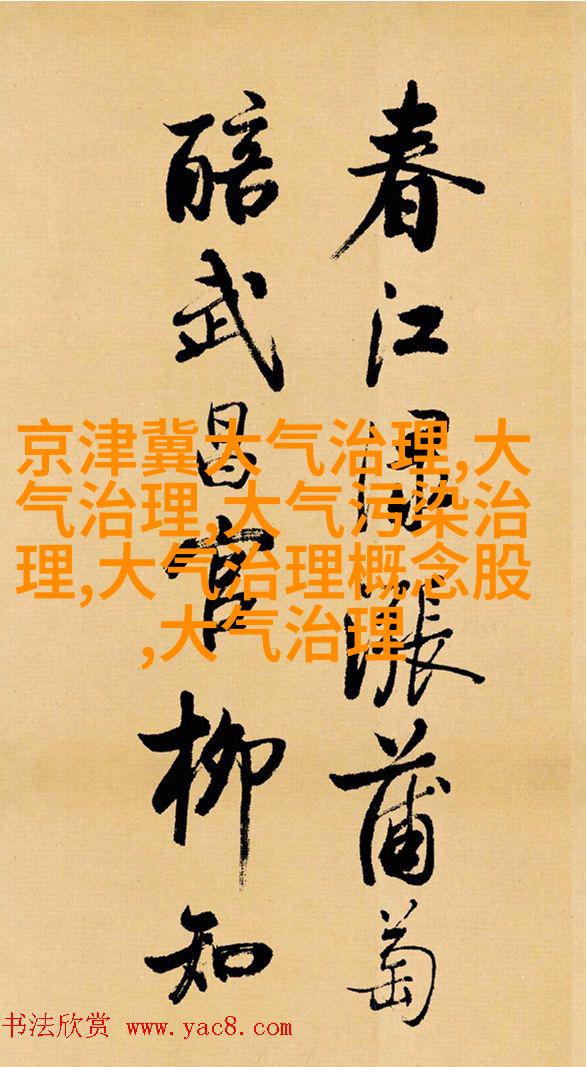 春江漲蒲萄
醅武昌官柳知
京津冀大气治理,大
气治理,大气污染治
理,大气治理概念股
,大气治理
书法欣赏 www.yac8.com